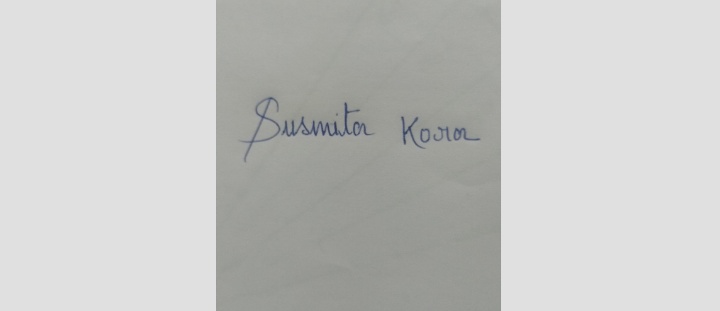 Susmita Kora